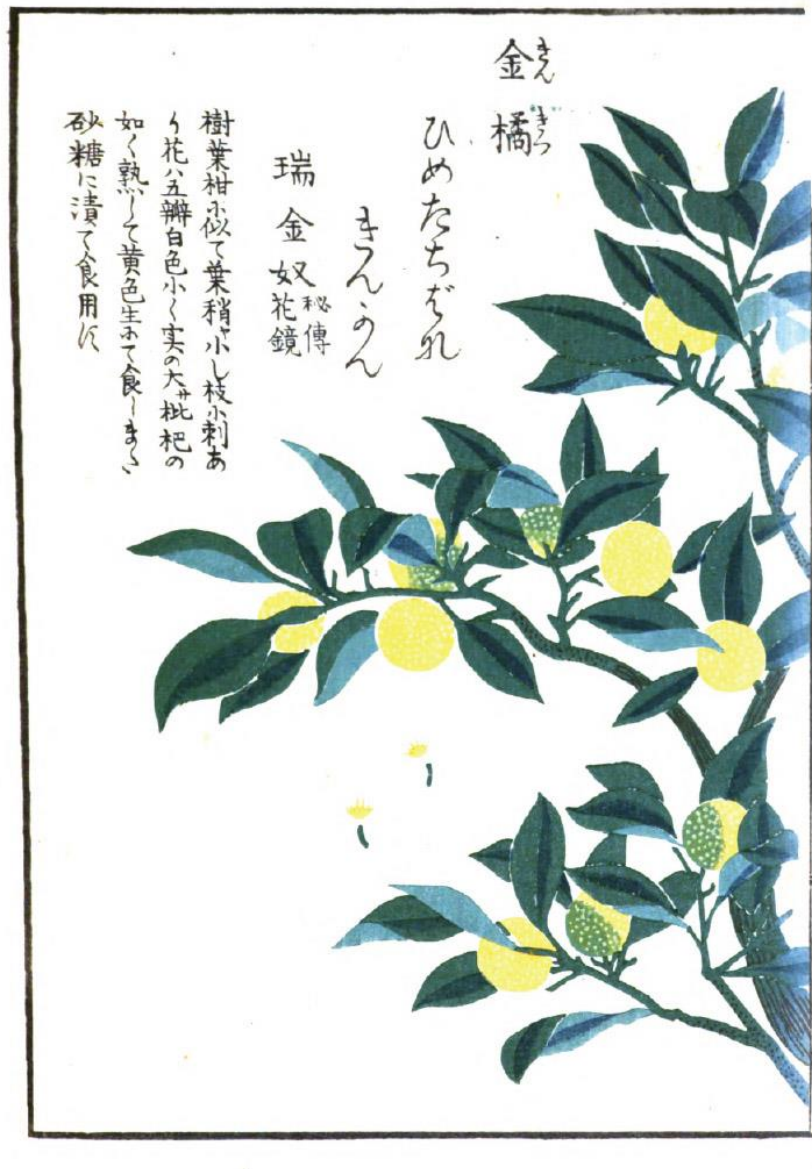 金橘
きんきつ
ひめたちばな
きんかん
瑞金奴 秘傳花鏡
樹葉柑ニ似て葉稍ヤ小し枝ニ刺あ
り花ハ五瓣白色小く実の大サ枇杷の
如く熟して黄色生ニて食しまた
砂糖に漬て食用に